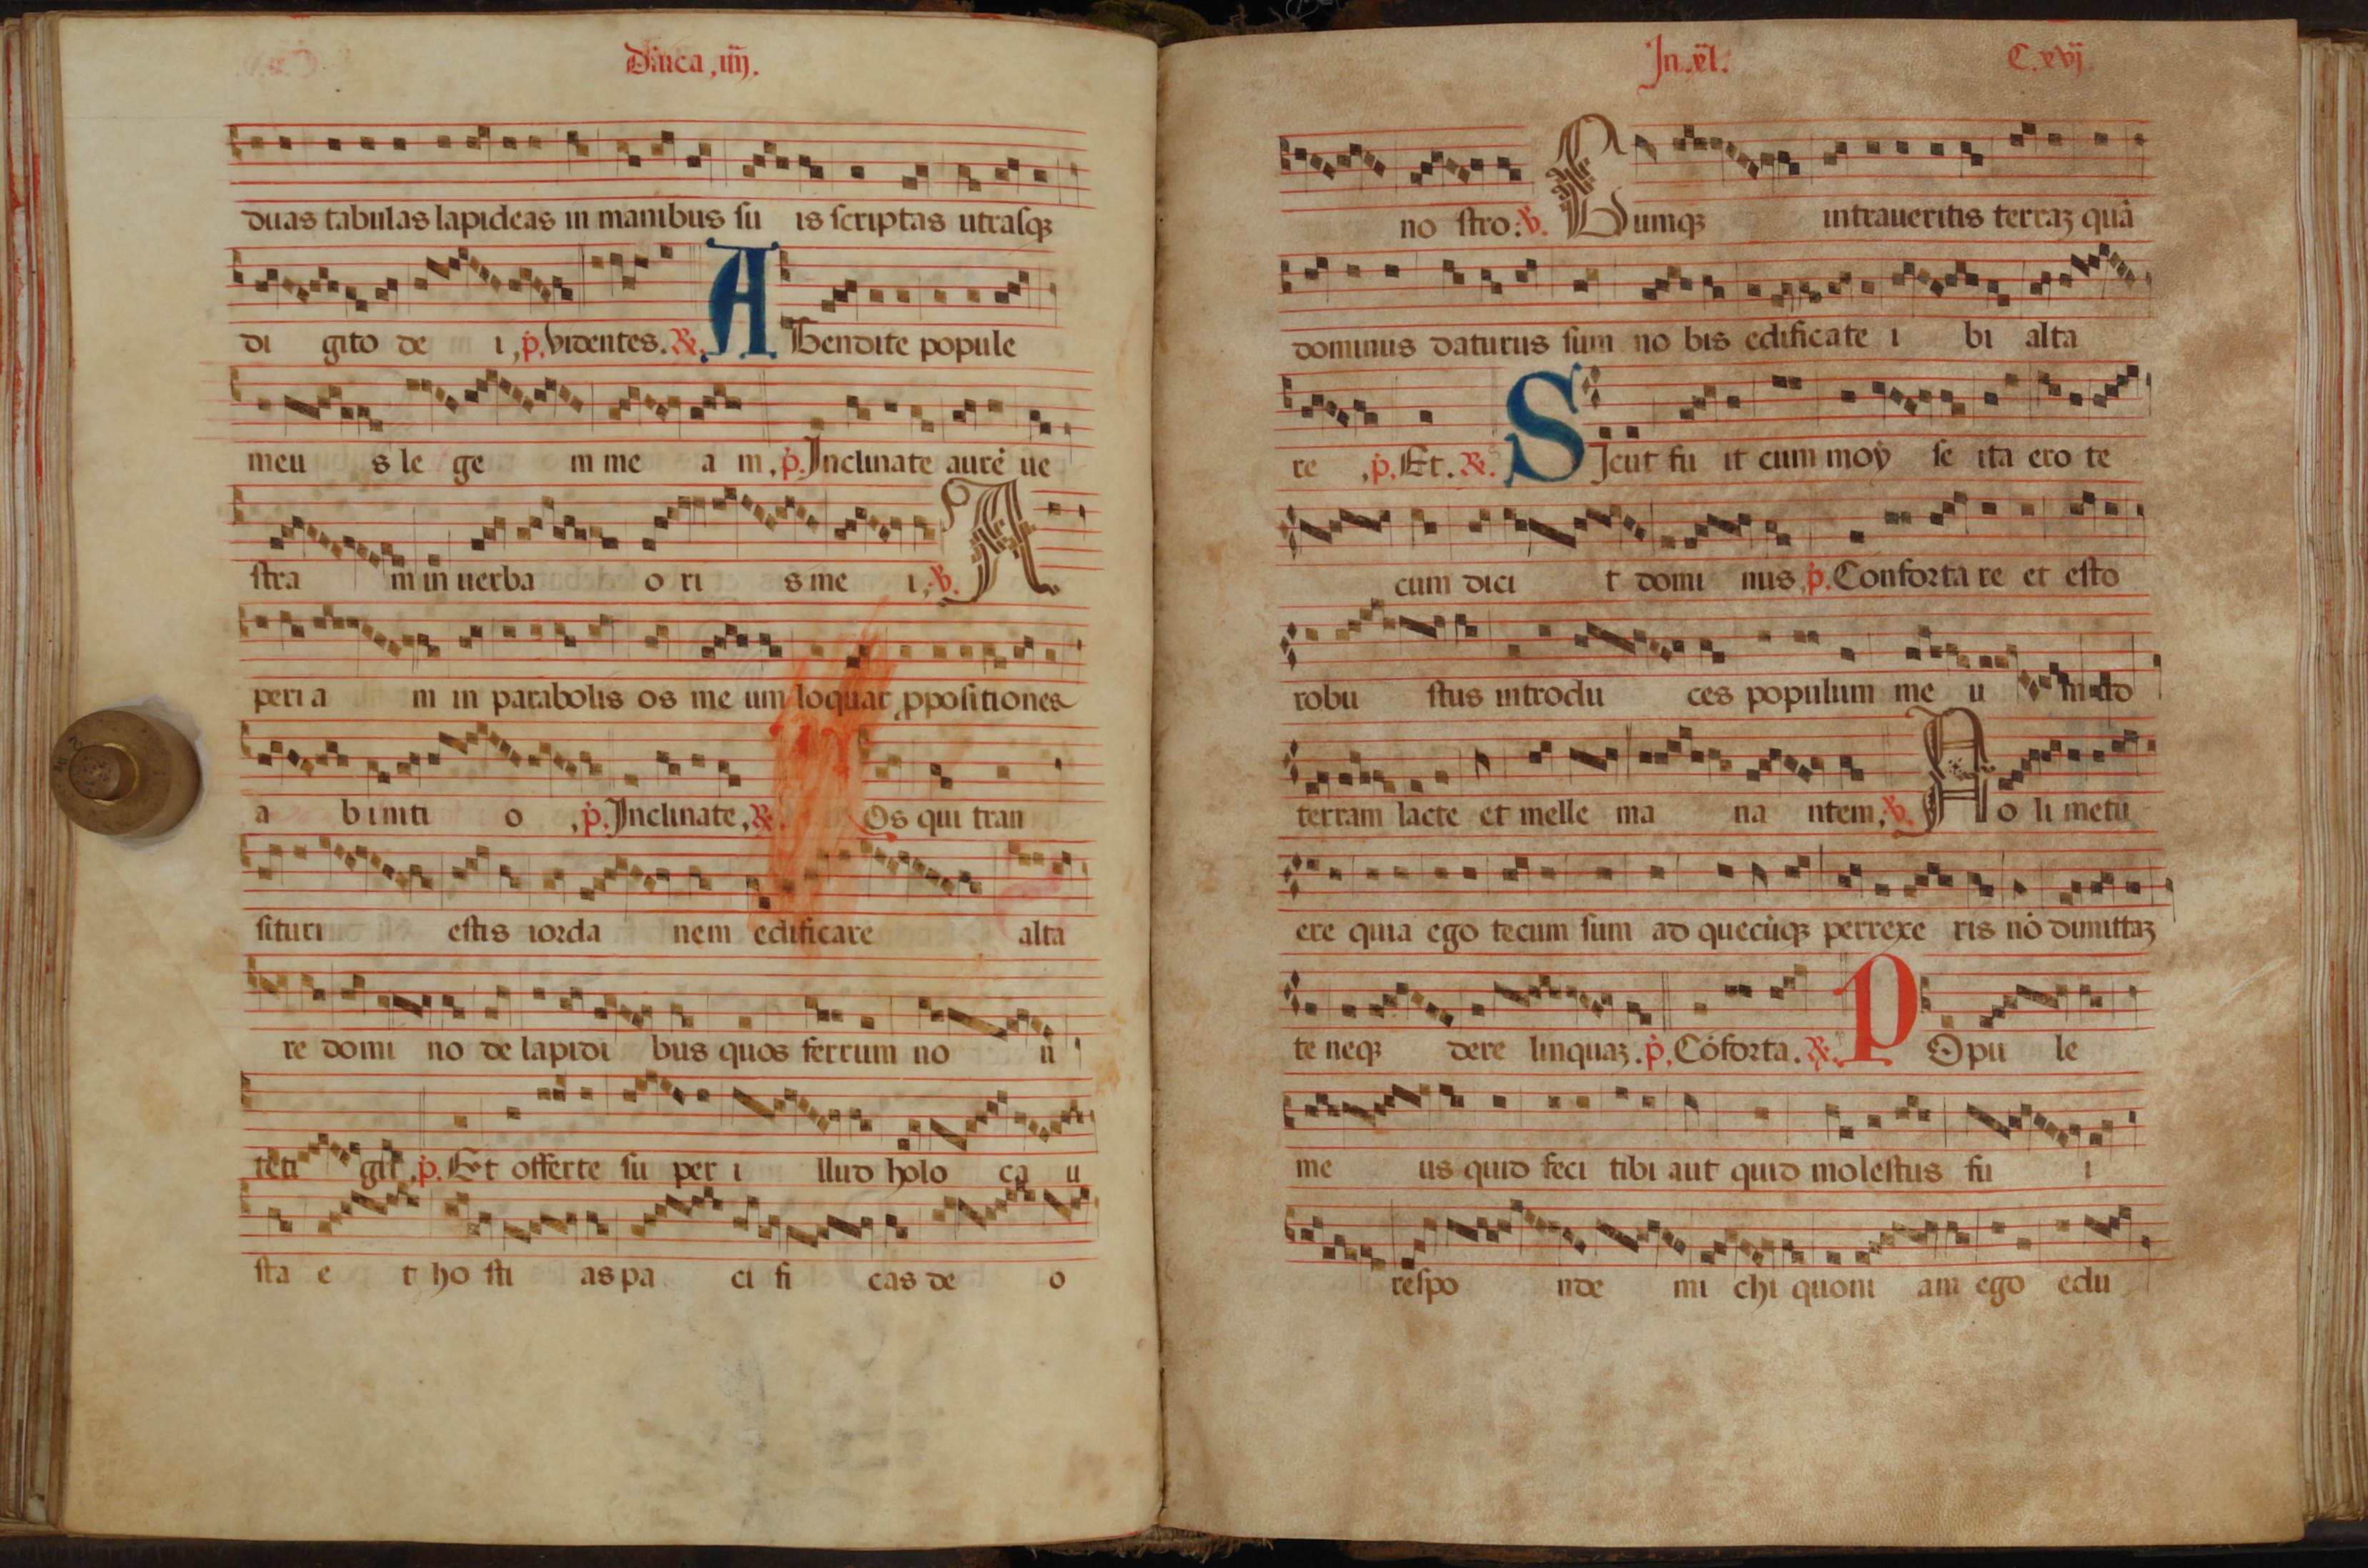 Dnica .iiij.
duas tabulas lapideas in manibus su is scriptas utrasq3
di gito de i .p. Videntes. R. A
ttendite popule
meu s le ge m me a m .p. Inclinate aurē ue
stra m in uerba o ri s me i. v. A
peri a m in parabolis os me um loquar ꝓpositiones
a b initi o .p. Inclinate. R. Os qui tran
situri estis iorda nem edificare alta
re domi no de lapidi bus quos ferrum no n
teti git .p. Et offerte su per i llud holo ca u
sta e t ho sti as pa ci fi cas de o
In.el. C.xvij
no stro: v. Cumq3 intraueritis terra3 quā
dominus daturus sum no bis edificate i bi alta
re .p. Et. R. S Icut fu it cum moy se ita ero te
cum dici t domi nus .p. Conforta re et esto
robu stus introdu ces populum me u m ad
terram lacte et melle ma na ntem. v. No li metu
ere quia ego tecum sum ad quecūq3 perrexe ris nō dimitta3
te neq3 dere linqua3 .p. Cōforta. R. P Opu le
me us quid feci tibi aut quid molestus fu i
respo nde mi chi quoni am ego edu